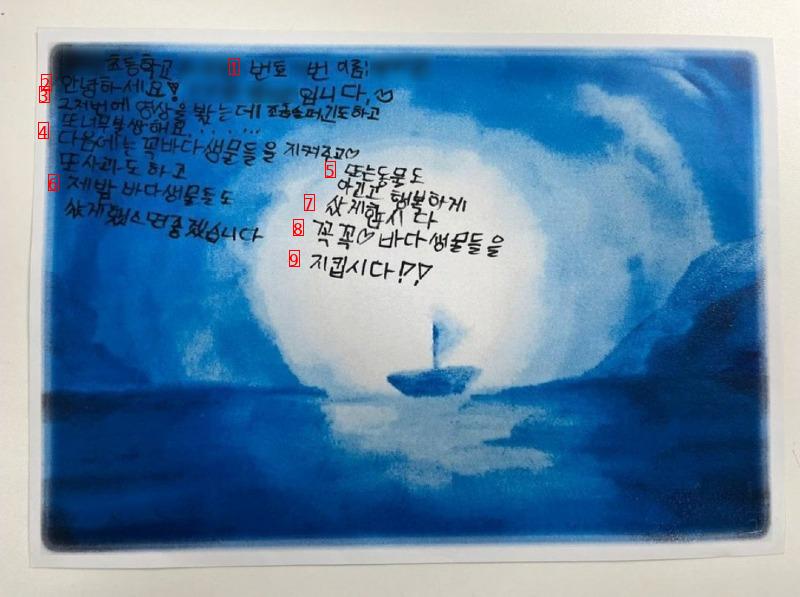 초등학교 1 번호 번 이름:
2 안녕하세요! 입니다.♡
3 그저번에 영상을 봤는데 조금슬퍼긴도하고
또 너무불쌍해요.......
4 다음에는 꼭바다생물들을 지켜주고♡
또 사과도 하고
6 제발 바다생물들도
살게했으면좋겠습니다
5 또는동물도
아끼고 행복하게
7 살게합시다
8 꼭꼭♡ 바다생물들을
9 지킵시다!!